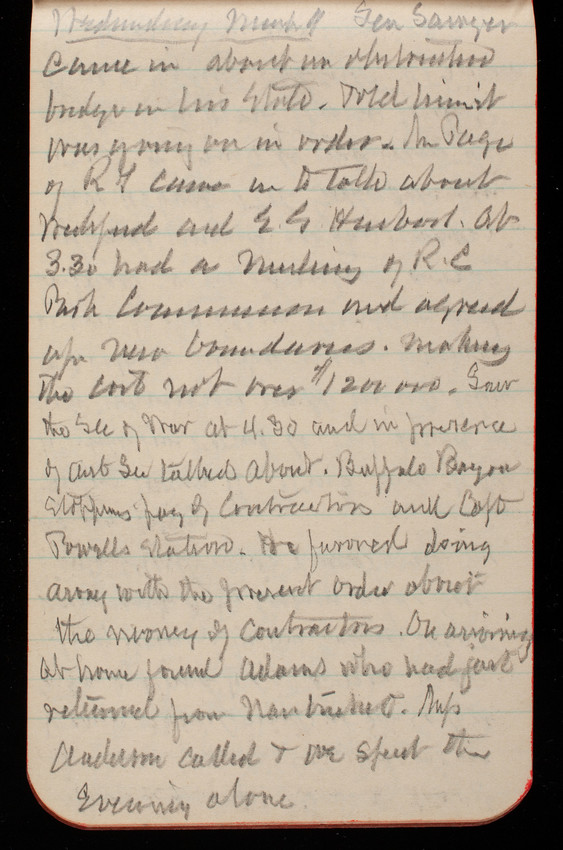 Wednesday March 4 Gen Sawyer
came in about an obstructive
bridge in his State. Told him it
was going on in order. Mr Page
of R I came in to talk about
and E. G. Hubbard. At
3.30 had a meeting of R. C
Park Commission and agreed
upon new boundaries. making
the cost not over $1200000. Saw
the Sec of War at 4.30 and in presence
of asst Sec talked about. Buffalo Bayou
Stopping pay of Contractors and Capt
Powells station. He favored doing
away with the present order about
the money of contractors. On arriving
at home found Adams who had just
returned from Nantucket. Miss
Anderson called & we spent the
Evening alone.